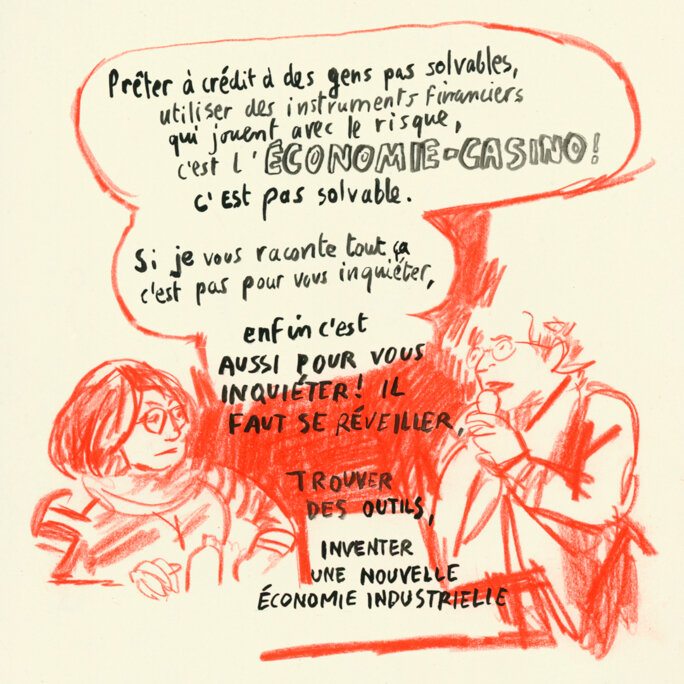 Prêter à crédit à des gens pas solvables,
utiliser des instruments financiers
qui jouent avec le risque,
c'est l'ÉCONOMIE-CASINO!
c'est pas solvable.
Si je vous raconte tout ça
c'est pas pour vous inquiéter,
enfin c'est
AUSSI POUR VOUS
INQUIÉTER! IL
FAUT SE RÉVEILLER,
TROUVER
DES OUTILS,
INVENTER
UNE NOUVELLE
ÉCONOMIE INDUSTRIELLE